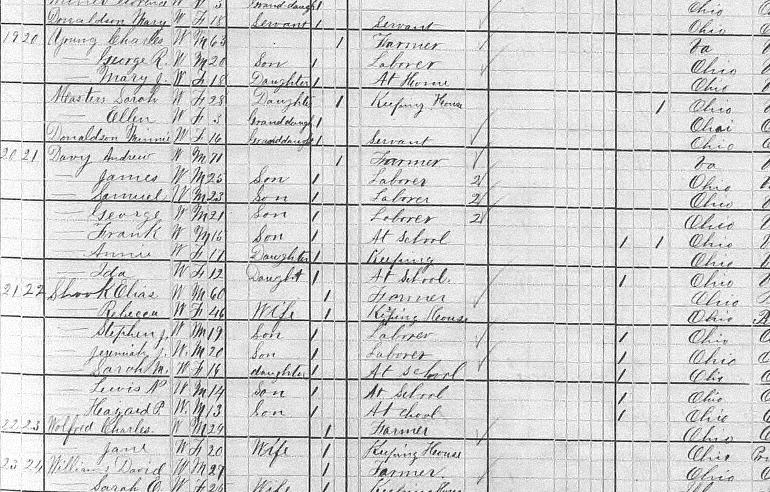 Florence W F 3 Granddaugh 1 Ohio
Donaldson Mary W F 18 Servant 1 Servant Ohio
19 20 Young Charles W M 63 1 Farmer Va
— George R. W M 20 Son 1 Laborer Ohio
— Mary J. W F 18 Daughter 1 At Home Ohio
Masters Sarah W F 28 Daughter 1 Keeping House 1 Ohio
— Ellen W F 3 Granddaugh 1 Ohoi
Donaldson Minnie W F 16 Granddaugh 1 Servant Ohio
20 21 Davy Andrew W M 71 1 Farmer Va
— James W M 25 Son 1 Laborer 2 Ohio
— Samuel W M 23 Son 1 Laborer 2 Ohio
— George W M 21 Son 1 Laborer 2 Ohio
— Frank W M 16 Son 1 At School 1 1 Ohio
— Annie W F 17 Daughter 1 Keeping Ohio
— Ida W F 12 Daught 1 At School. 1 Ohio
21 22 Shook Elias W M 60 1 Farmer Ohio
— Rebecca W F 46 Wife 1 Kiping House Ohio
— Stephen J. W M 19 Son 1 Laborer 1 Ohio
— Jeremiah J. W M 20 Son 1 Laborer 1 Ohio
— Sarah M. W F 16 daughter 1 At School 1 Ohio
— Lewis N. W M 14 Son 1 At School 1 Ohio
— Hazard P. W M 13 Son 1 At chool 1 Ohio
22 23 Wolford Charles W M 29 1 Farmer Ohio
— Jane W F 20 Wife 1 Keeping House Ohio
23 24 Williams David W M 29 1 Farmer Ohio
— Sarah O. W F 26 Wife 1 Keeping House